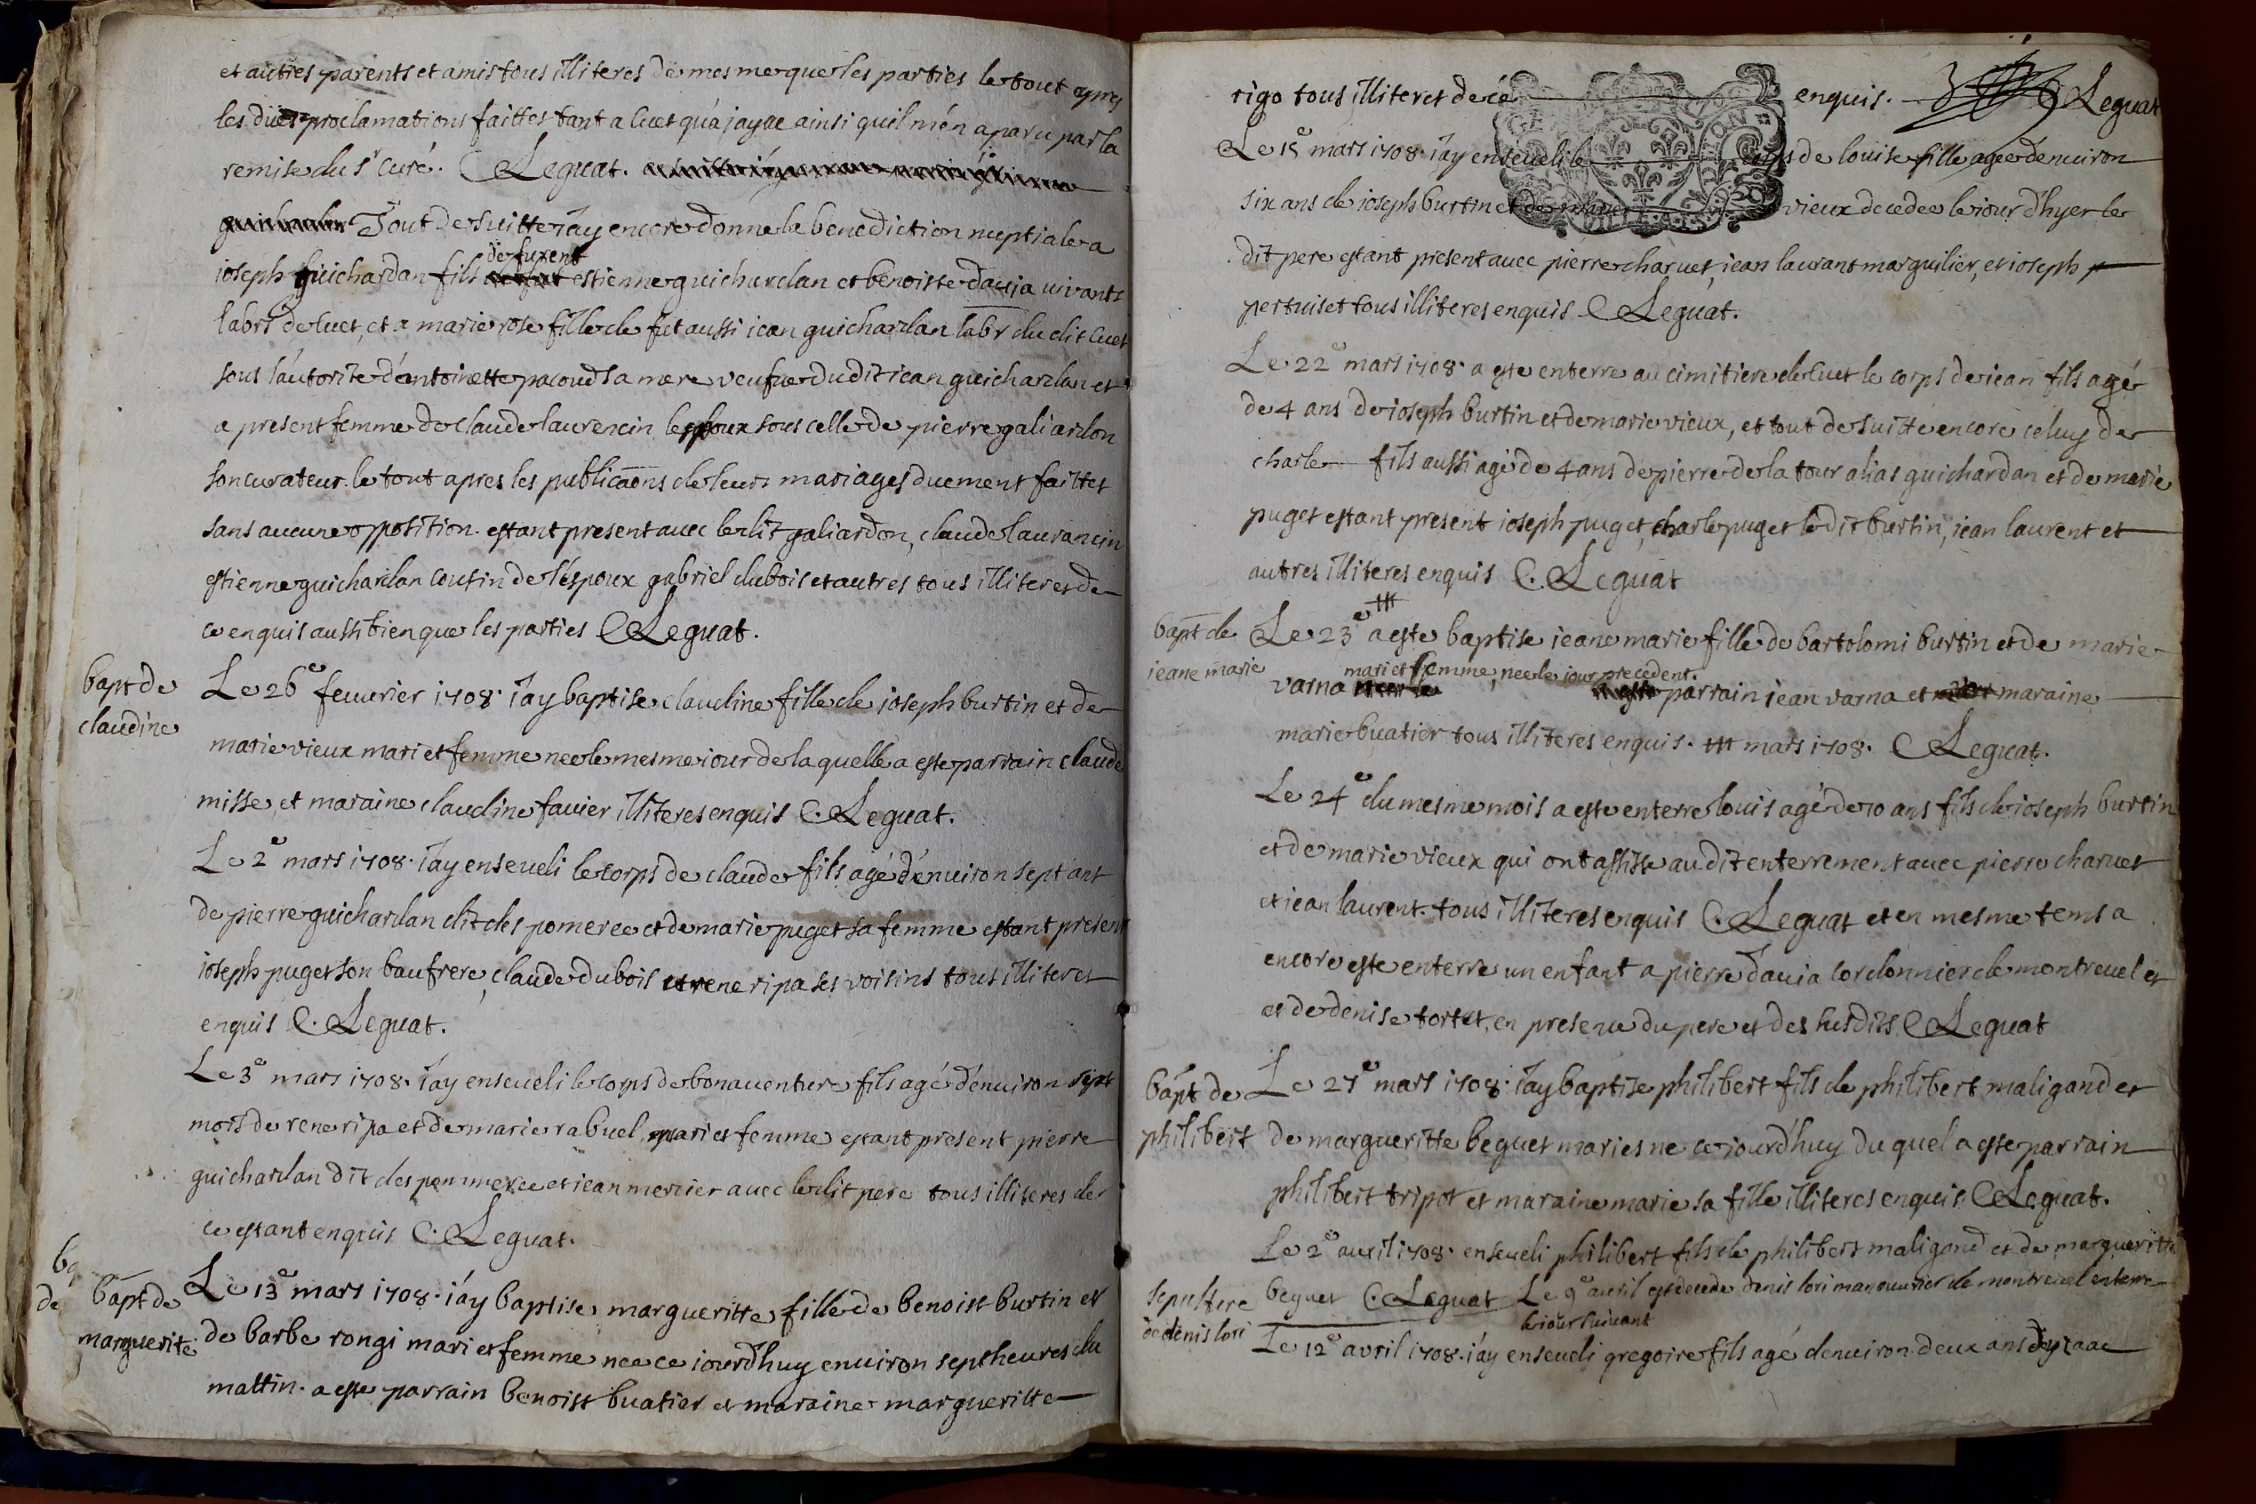 et autres parents et amis tous illiteres de mesme que les parties le tout apres
les dües proclamations faittes tant a Cuet qu'a jayac ainsi quil m'en a paru par la
remise du Sr curé. C. Leguat.
Tout de suitte J'ay encore donne la benediction nuptiale a
joseph guichardan fils defuxent estienne guichardan et benoiste davia vivants
labrs de Cuet, et a marie rose fille de fut aussi jean guichardan labr du dit Cuet
sous l'autorite d'antoinette pacoud sa mere veufve dudit jean guichardan et
a present femme de claude laurencin lespoux sous celle de pierre galiardon
son curateur. le tout apres les publicaons de leurs mariages duement faittes
sans aucune opposition. estant present avec le dit galiardon, claude laurancin
estienne guichardan cousin de l'espoux gabriel dubois et autres tous illiteres de
ce enquis aussi bien que les parties C. Leguat.
bapt de
claudine
Le 26e fevvrier 1708. J'ay baptise claudine fille de joseph burtin et de
marie vieux mari et femme nee le mesme jour de laquelle a este parrain claude
misse, et maraine claudine favier illiteres enquis C. Leguat.
Le 2e mars 1708. J'ay enseveli le corps de claude fils agé d'environ sept ans
de pierre guichardan dit des pomeree et de marie puget sa femme estant present
joseph puget son baufrere, claude dubois et rene ripa ses voisins tous illiteres
enquis C. Leguat.
Le 3e mars 1708. J'ay enseveli le corps de bonaventure fils agé d'environ sept
mois de rene ripa et de marie rabuel, mari et femme estant present pierre
guichardan dit des pommeree et jean mercier avec le dit pere tous illiteres de
ce estant enquis C. Leguat.
bapt de
marguerite
Le 13e mars 1708. j'ay baptise margueritte fille de benoist burtin et
de barbe rongi mari et femme nee ce jourd'huy environ sept heures du
mattin. a este parrain benoist buatier et maraine margueritte
rigo tous illiteres de cé enquis. C. Leguat
Le 15e mars 1708. J'ay enseveli le corps de louise fille agee denviron
six ans de joseph burtin et de marie vieux decedee le jour d'hyer le
dit pere estant present avec pierre charvet, jean laurant marguilier, et joseph
pertuiset tous illiteres enquis C. Leguat.
Le 22e mars 1708. a este enterre au cimitiere de Cuet le corps de jean fils agé
de 4 ans de joseph burtin et de marie vieux, et tout de suitte encore celuy de
charle fils aussi agé de 4 ans de pierre de la tour alias guichardan et de marie
puget estant present joseph puget, charle puget le dit burtin, jean laurent et
autres illiteres enquis C. Leguat
bapt de
jeane marie
Le 23e a este baptise jeane marie fille de bartolomi burtin et de marie
varna mari et femme, nee le jour precedent. parrain jean varna et maraine
marie buatier tous illiteres enquis. mars 1708. C. Leguat.
Le 24e du mesme mois a este enterre louis agé de 10 ans fils de joseph burtin
et de marie vieux qui ont assiste au dit enterrement avec pierre charvet
et jean laurent. tous illiteres enquis C. Leguat et en mesme tems a
encore este enterre un enfant a pierre davia cordonnier de montrevel et
et de denise tortet, en presence du pere et des susdits C. Leguat
bapt de
philibert
Le 27e mars 1708. J'ay baptise philibert fils de philibert maligand et
de margueritte beguet maries ne ce jourd'huy du quel a este parrain
philibert tripot et maraine marie sa fille illiteres enquis C. Leguat.
Le 2e avril 1708. enseveli philibert fils de philibert maligand et de margueritte
sepulture
de denis lori
beguet C. Leguat Le 9e avril est decede denis lori manouvrier de montrevel enterre
le jour suivant
Le 12e avril 1708. j'ay enseveli gregoire fils agé denviron deux ans d'yzaac